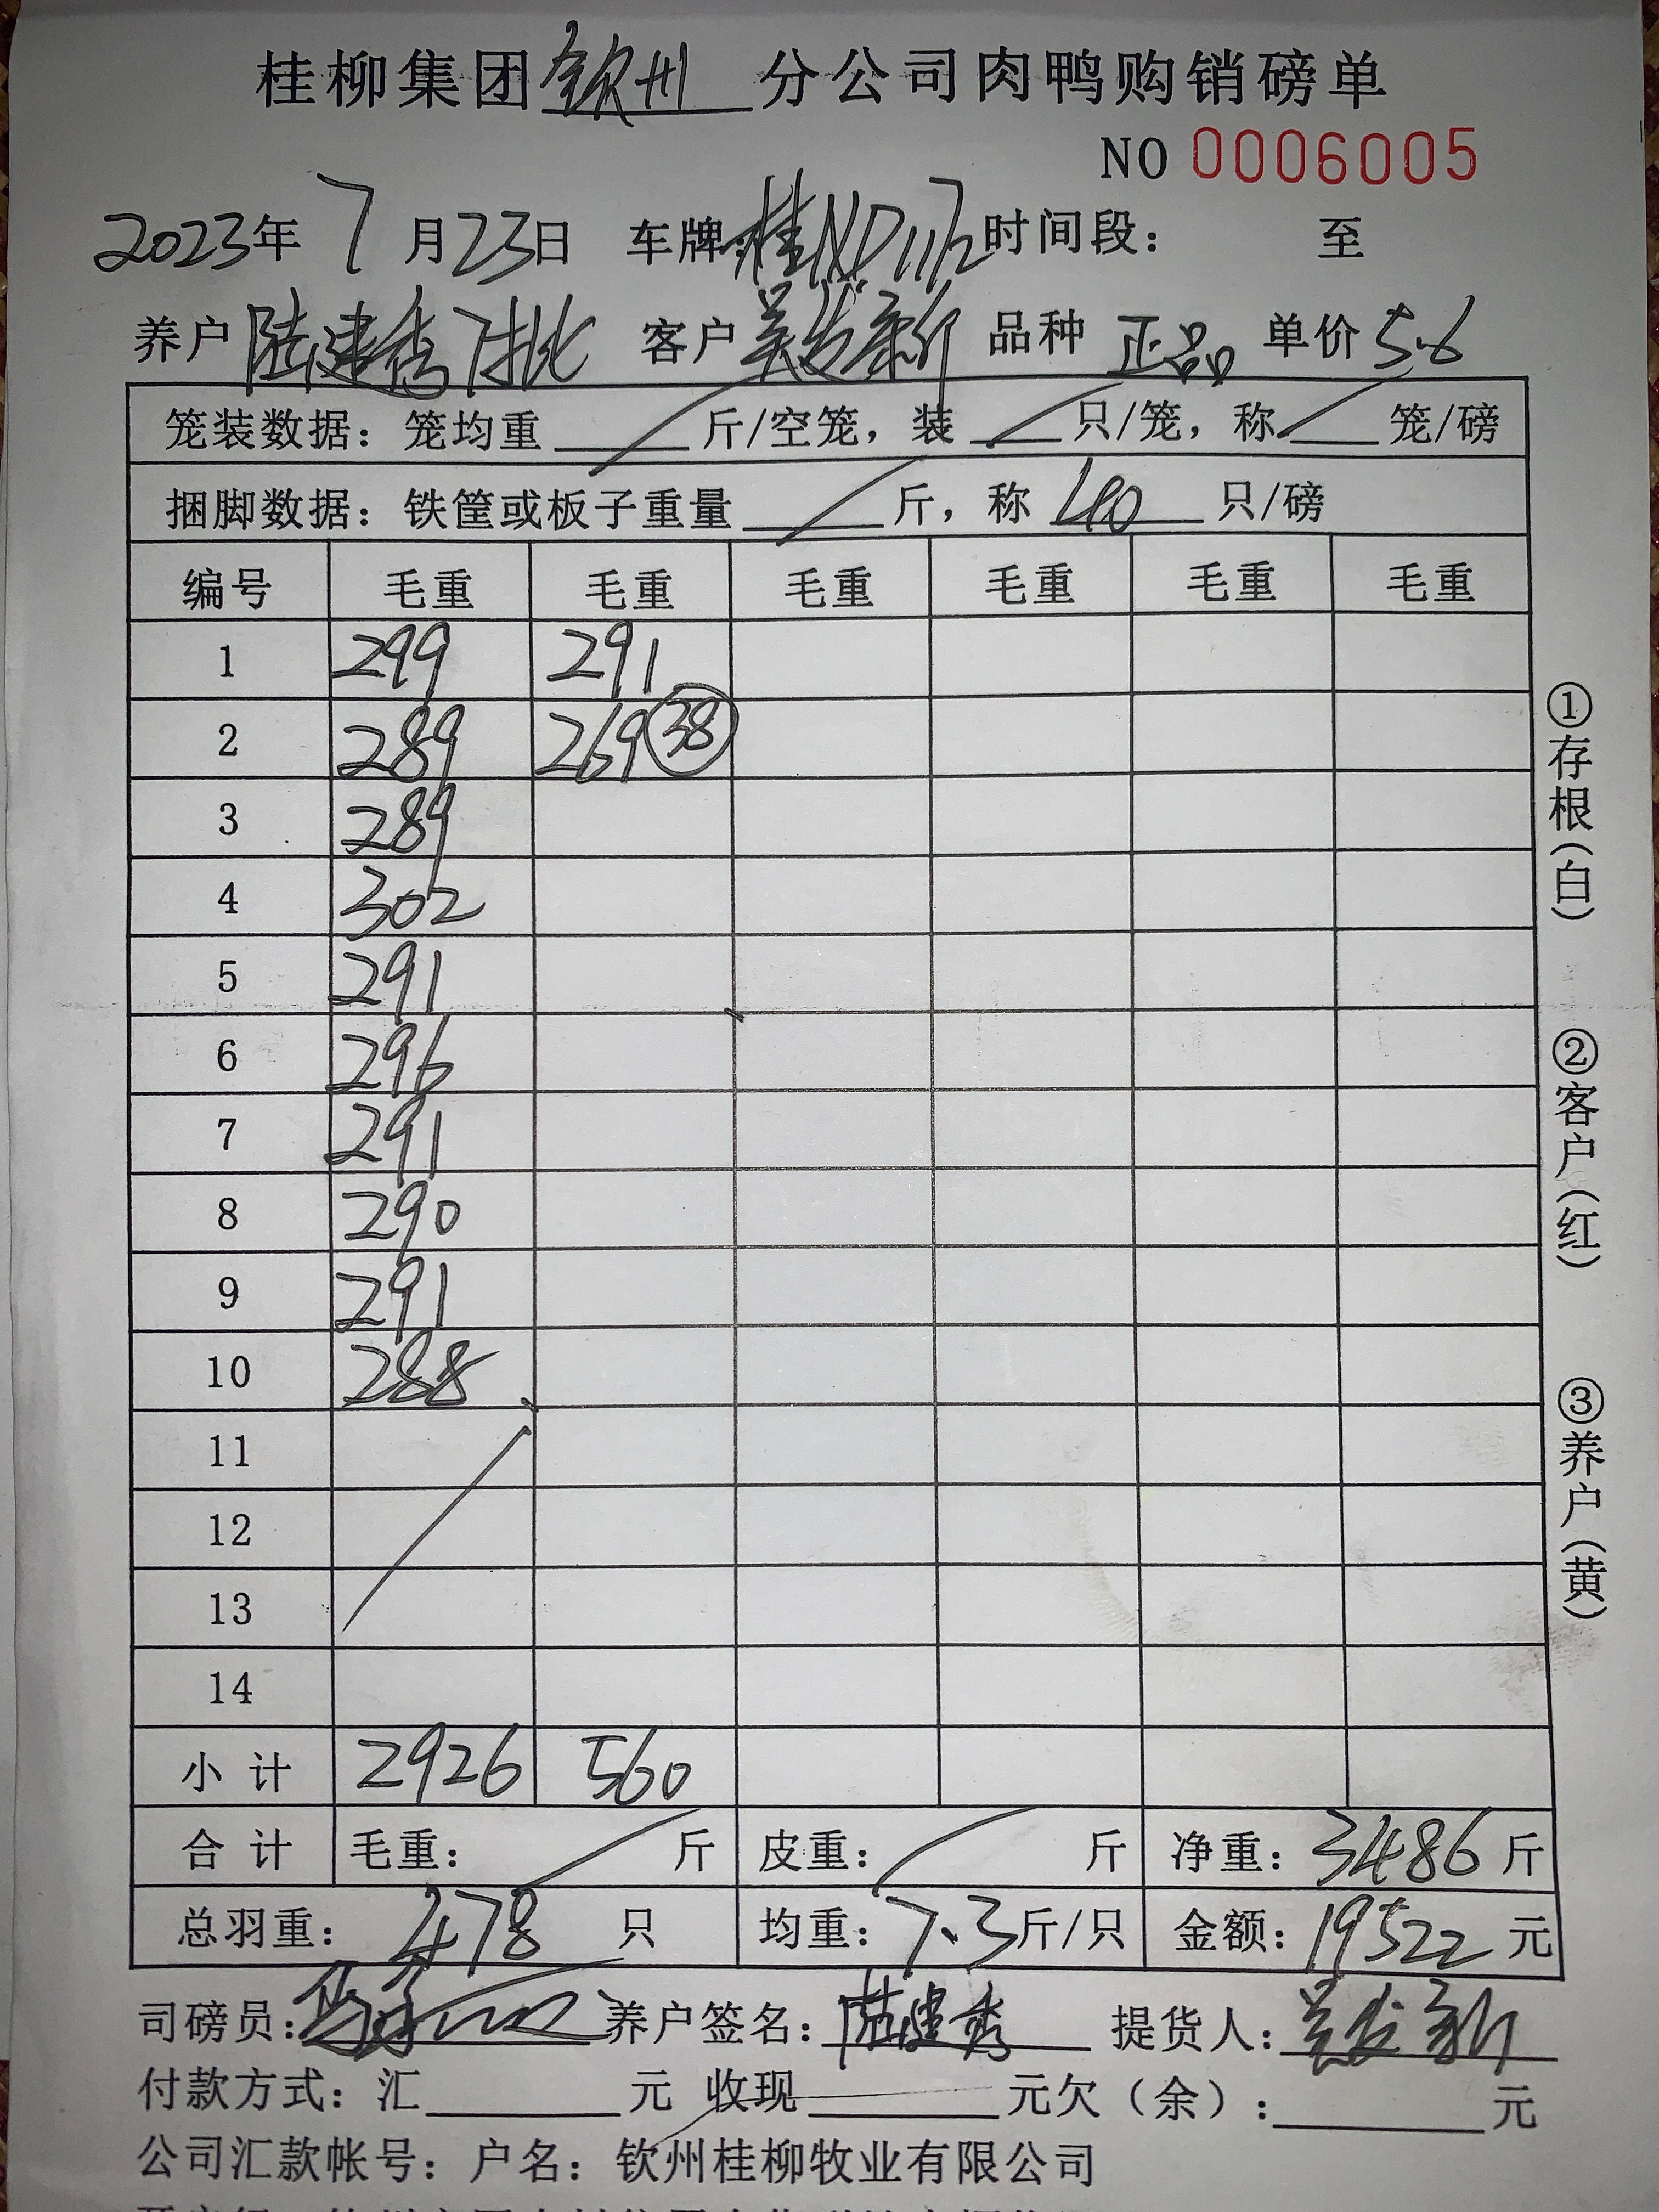 桂柳集团钦州分公司肉鸭购销磅单
NO 0006005
2023年7月23日 车牌:桂ND1172 时间段: 至
养户 陆建秀7批 客户 吴发新 品种 正品 单价 5.6
笼装数据：笼均重 斤/空笼，装 只/笼，称 笼/磅
捆脚数据：铁筐或板子重量 斤，称 40 只/磅
编号 毛重 毛重 毛重 毛重 毛重 毛重
1 299 291
2 289 269 38
3 289
4 302
5 291
6 296
7 291
8 290
9 291
10 288
11
12
13
14
小计 2926 560
合计 毛重: 斤 皮重: 斤 净重: 3486 斤
总羽重: 478 只 均重: 7.3 斤/只 金额: 19522 元
司磅员: 养户签名: 陆建秀 提货人: 吴发新
付款方式: 汇 元 收现 元欠（余）: 元
公司汇款帐号: 户名: 钦州桂柳牧业有限公司
①存根（白）
②客户（红）
③养户（黄）